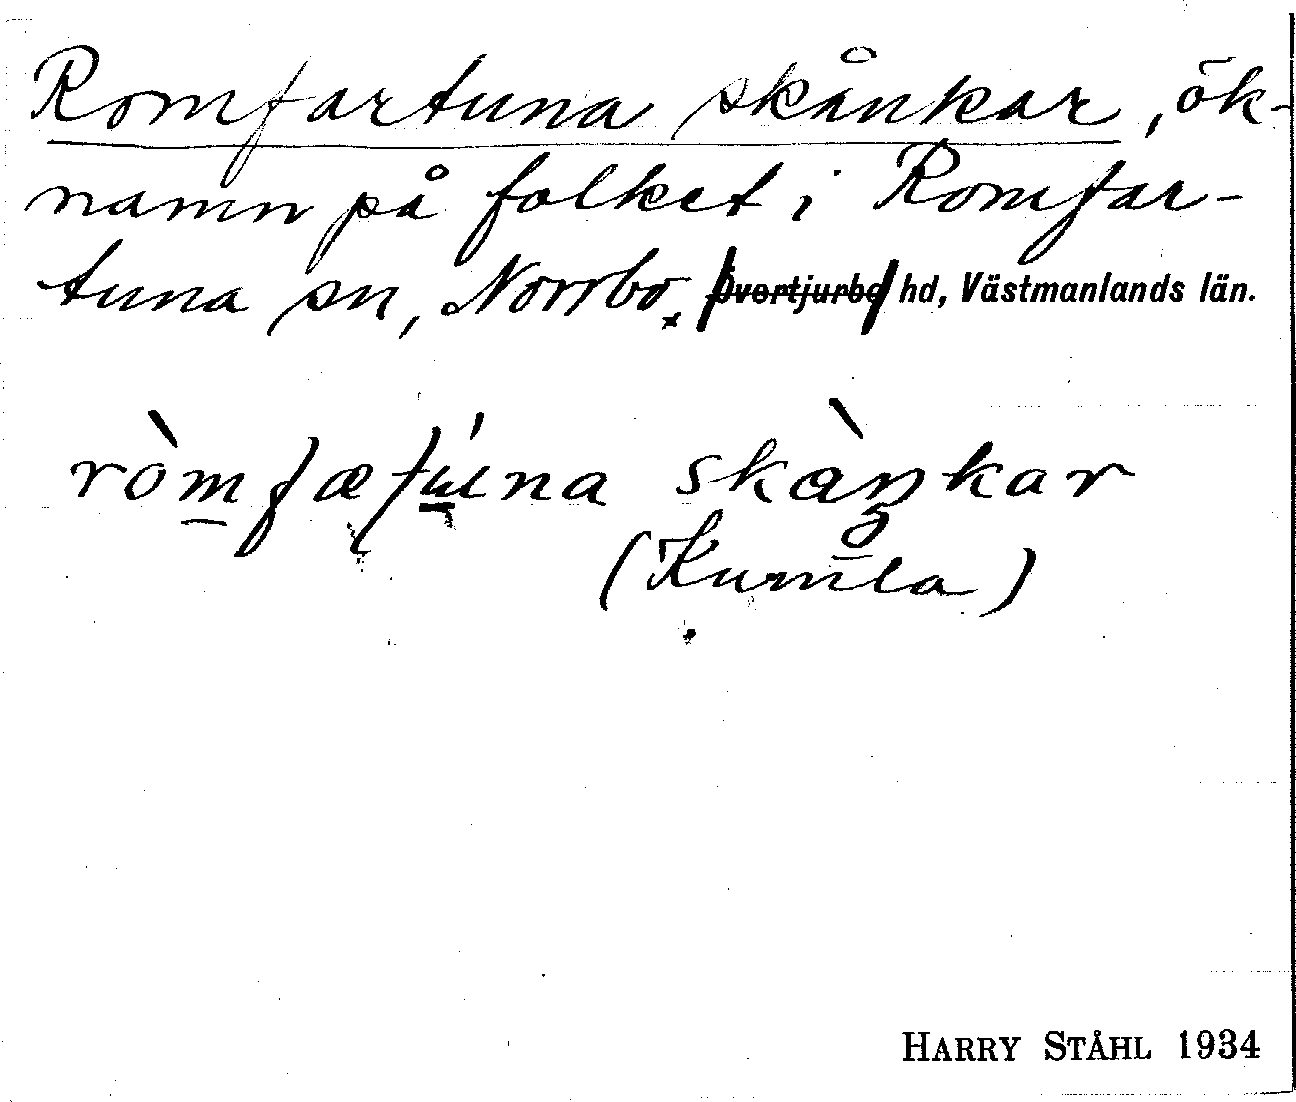 Romfartuna skånkar, ök-
namn på folket i Romfar-
tuna sn, Norrbo, Övertjurbo hd, Västmanlands län.
ròmfætúna skàŋkar
(Kumla)
HARRY STÅHL 1934